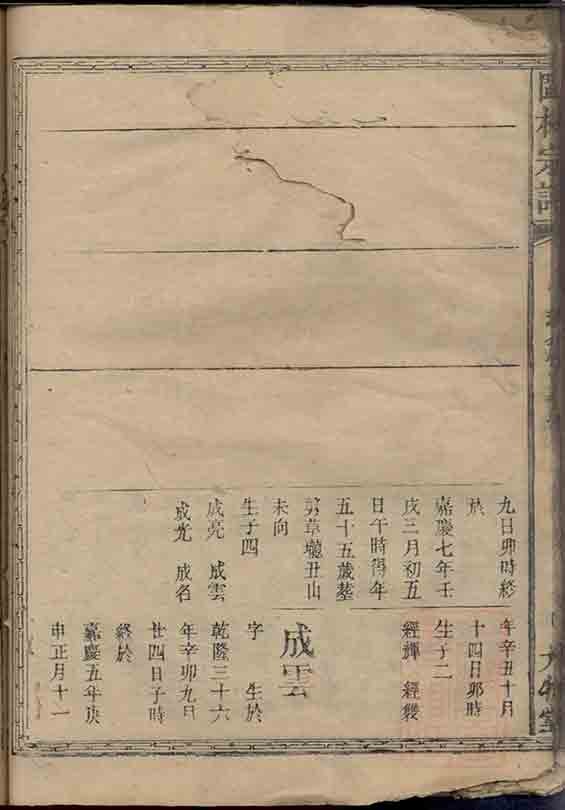 宗譜
九日卯時終
於
嘉慶七年壬
戌三月初五
日午時得年
五十五歲塟
草壠丑山
未向
生子四
成亮 成雲
成光 成名
年辛丑十月
十四日卯時
生子二
經禪
成雲
字 生於
乾隆三十六
年辛卯九月
廿四日子時
終於
嘉慶五年庚
申正月十一